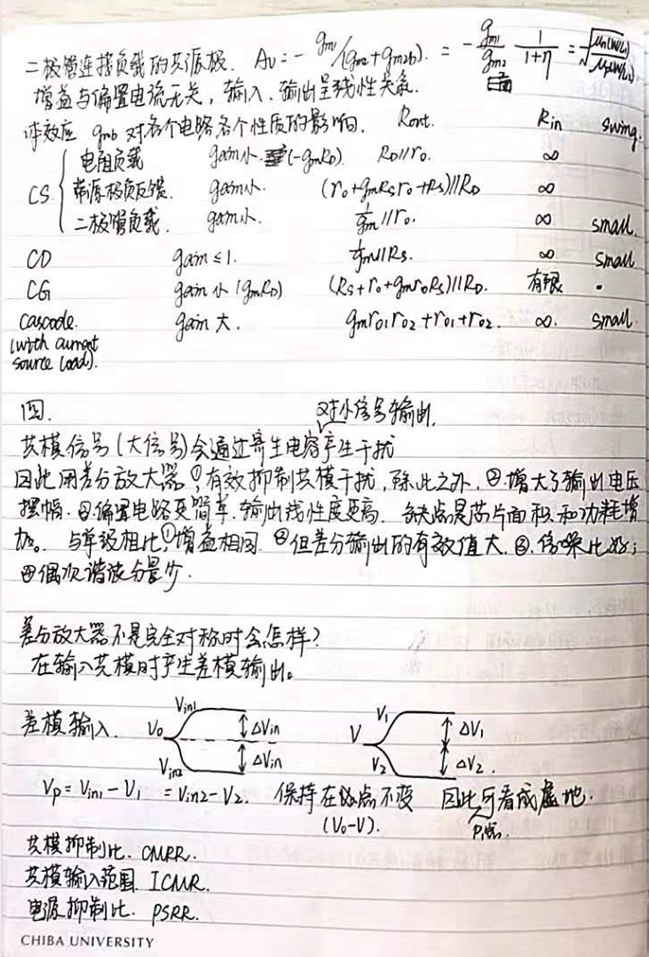 二极管连接负载的共源极. Av = - gm1/(gm2+gmb2). = - gm1/gm2 · 1/(1+η) = -√(μn(W/L)₁/μp(W/L)₂)
增益与偏置电流无关, 输入、输出呈线性关系.
体效应 gmb 对各个电路各个性质的影响. Rout. Rin swing.
CS { 电阻负载 gain小. (-gmRD). RD//ro. ∞
带源极负反馈. gain小. (ro+gmRsro+Rs)//RD ∞
二极管负载. gain小. 1/gm//ro. ∞ small.
CD gain≤1. 1/gm//Rs. ∞ small
CG gain小 (gmRD) (Rs+ro+gmroRs)//RD. 有限. .
cascode. gain大. gmro1ro2+ro1+ro2. ∞. small.
(with current
source load).
四. 对小信号输出.
共模信号(大信号)会通过寄生电容产生干扰
因此用差分放大器①有效抑制共模干扰, 除此之外. ②增大了输出电压
摆幅. ③偏置电路更简单. 输出线性度更高. 缺点是芯片面积和功耗增
加。 与单级相比①增益相同. ②但差分输出的有效值大. ③. 信噪比好;
④偶次谐波分量少.
差分放大器不是完全对称时会怎样?
在输入共模时产生差模输出。
差模输入. V₀ Vin1 Vin2 ΔVin ΔVin V V₁ V₂ ΔV₁ ΔV₂.
Vp = Vin1 - V₁ = Vin2 - V₂. 保持在该点不变 因此可看成虚地.
(V₀-V). P点.
共模抑制比. CMRR.
共模输入范围. ICMR.
电源抑制比. PSRR.
CHIBA UNIVERSITY